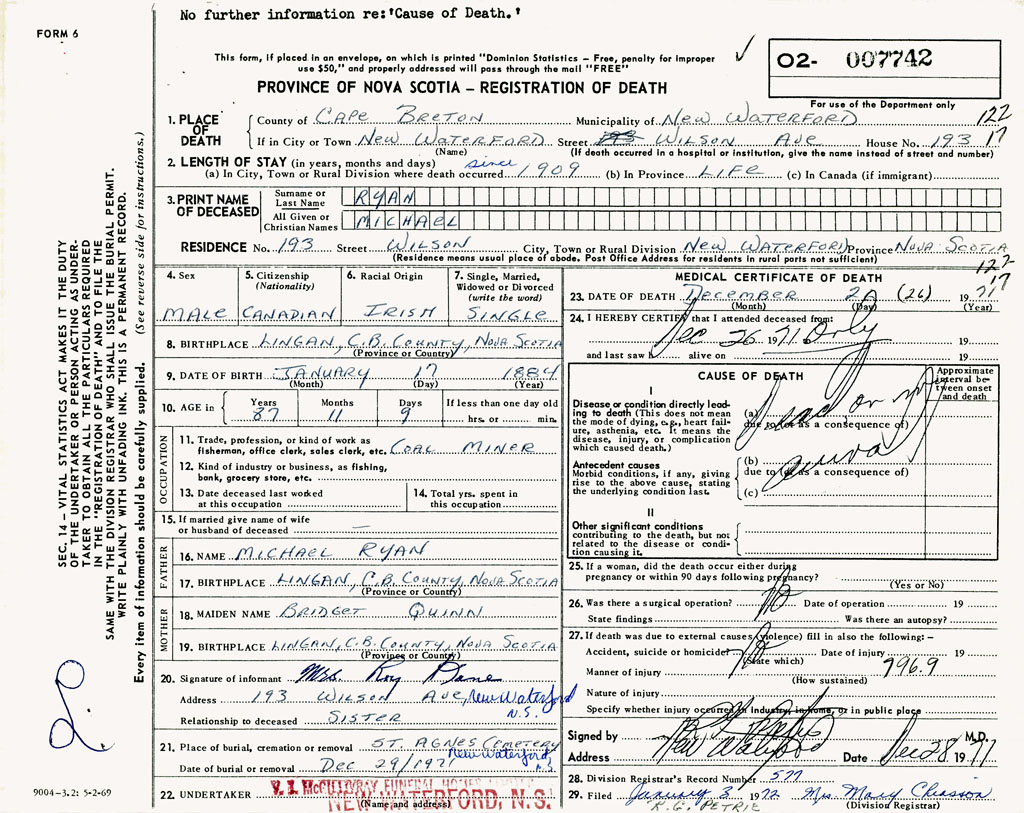 No further information re:'Cause of Death.'
FORM 6
This form, if placed in an envelope, on which is printed "Dominion Statistics – Free, penalty for improper
use $50," and properly addressed will pass through the mail "FREE"
O2- 007742
For use of the Department only
PROVINCE OF NOVA SCOTIA – REGISTRATION OF DEATH
1. PLACE OF DEATH
County of CAPE BRETON Municipality of NEW WATERFORD 122
If in City or Town NEW WATERFORD Street WILSON AVE House No. 193 17
(Name) (If death occurred in a hospital or institution, give the name instead of street and number)
2. LENGTH OF STAY (in years, months and days)
(a) In City, Town or Rural Division where death occurred since 1909 (b) In Province LIFE (c) In Canada (if immigrant)
3. PRINT NAME OF DECEASED
Surname or Last Name RYAN
All Given or Christian Names MICHAEL
RESIDENCE No. 193 Street WILSON City, Town or Rural Division NEW WATERFORD Province NOVA SCOTIA
(Residence means usual place of abode. Post Office Address for residents in rural parts not sufficient)
122
17
4. Sex MALE
5. Citizenship (Nationality) CANADIAN
6. Racial Origin IRISH
7. Single, Married, Widowed or Divorced (write the word) SINGLE
8. BIRTHPLACE LINGAN, C.B. COUNTY, NOVA SCOTIA
(Province or Country)
9. DATE OF BIRTH JANUARY 17 1884
(Month) (Day) (Year)
10. AGE in Years 87 Months 11 Days 9 If less than one day old hrs. or min.
OCCUPATION
11. Trade, profession, or kind of work as fisherman, office clerk, sales clerk, etc. COAL MINER
12. Kind of industry or business, as fishing, bank, grocery store, etc.
13. Date deceased last worked at this occupation
14. Total yrs. spent in this occupation
15. If married give name of wife or husband of deceased —
FATHER
16. NAME MICHAEL RYAN
17. BIRTHPLACE LINGAN, C.B. COUNTY, NOVA SCOTIA
(Province or Country)
MOTHER
18. MAIDEN NAME BRIDGET QUINN
19. BIRTHPLACE LINGAN, C.B. COUNTY, NOVA SCOTIA
(Province or Country)
20. Signature of informant Mrs. Roy
Address 193 WILSON AVE, New Waterford N.S.
Relationship to deceased SISTER
21. Place of burial, cremation or removal ST AGNES CEMETERY
New Waterford N.S.
Date of burial or removal DEC 29/1971
22. UNDERTAKER V. J. McGILLIVRAY FUNERAL HOMES
NEW WATERFORD, N.S.
(Name and address)
MEDICAL CERTIFICATE OF DEATH
23. DATE OF DEATH DECEMBER 26 (26) 1971
(Month) (Day) (Year)
24. I HEREBY CERTIFY that I attended deceased from:
Dec 26 1971 Only 19
and last saw h alive on 19
CAUSE OF DEATH
Approximate interval between onset and death
I
Disease or condition directly leading to death (This does not mean the mode of dying, e.g., heart failure, asthenia, etc. It means the disease, injury, or complication which caused death.)
(a) Dead on
due to (or as a consequence of)
Antecedent causes
Morbid conditions, if any, giving rise to the above cause, stating the underlying condition last.
(b)
due to (or as a consequence of)
(c)
II
Other significant conditions
contributing to the death, but not related to the disease or condition causing it.
25. If a woman, did the death occur either during pregnancy or within 90 days following pregnancy?
(Yes or No)
26. Was there a surgical operation? No Date of operation 19
State findings Was there an autopsy?
27. If death was due to external causes (violence) fill in also the following: –
Accident, suicide or homicide? No Date of injury 19
(State which)
Manner of injury 796.9
(How sustained)
Nature of injury
Specify whether injury occurred in industry, in home, or in public place
Signed by M.D.
Address New Waterford Date Dec 28 1971
28. Division Registrar's Record Number 577
29. Filed January 3 1972 Mrs. Mary Chiasson
R.G. PETRIE (Division Registrar)
SEC. 14 – VITAL STATISTICS ACT MAKES IT THE DUTY
OF THE UNDERTAKER OR PERSON ACTING AS UNDERTAKER
TO OBTAIN ALL THE PARTICULARS REQUIRED
IN THE "REGISTRATION OF DEATH" AND TO FILE THE
SAME WITH THE DIVISION REGISTRAR WHO SHALL ISSUE THE BURIAL PERMIT.
WRITE PLAINLY WITH UNFADING INK. THIS IS A PERMANENT RECORD.
Every item of information should be carefully supplied. (See reverse side for instructions.)
9004-3.2: 5-2-69